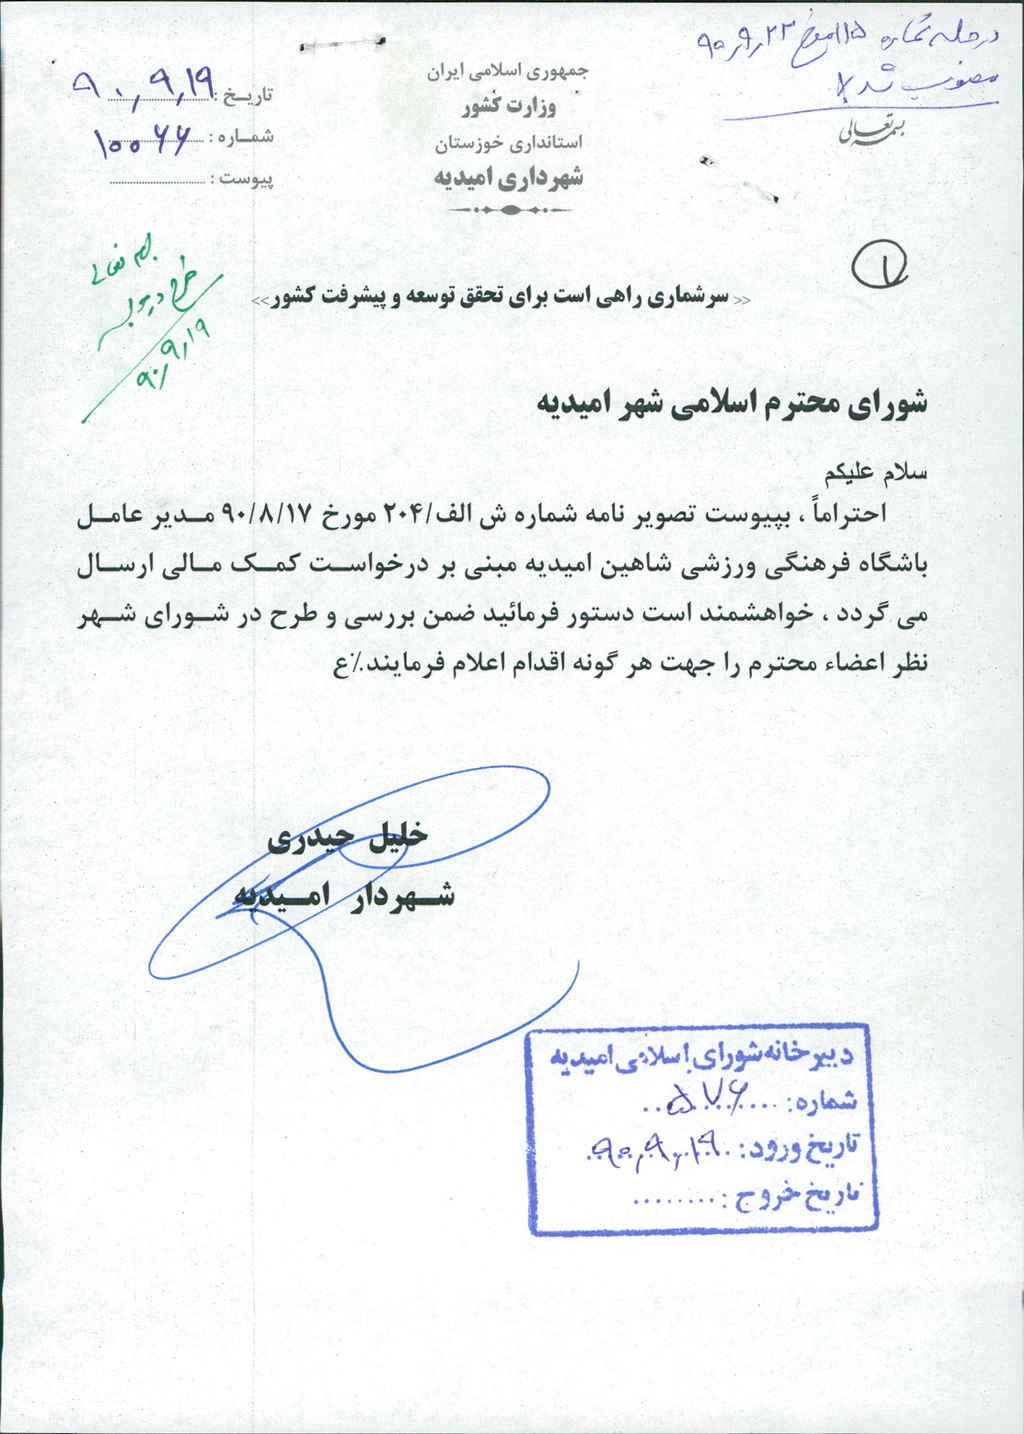 در جلسه شماره ۱۱۵ مورخ ۹۰٫۹٫۲۳
مصوب شد
بسمه تعالی
جمهوری اسلامی ایران
وزارت کشور
استانداری خوزستان
شهرداری امیدیه
تاریخ : ۹۰٫۹٫۱۹
شماره : ۱۰۰۶۶
پیوست :
۱
طرح
۹۰٫۹٫۱۹
«سرشماری راهی است برای تحقق توسعه و پیشرفت کشور»
شورای محترم اسلامی شهر امیدیه
سلام علیکم
احتراماً ، بپیوست تصویر نامه شماره ش الف/۲۰۴ مورخ ۹۰/۸/۱۷ مدیر عامل
باشگاه فرهنگی ورزشی شاهین امیدیه مبنی بر درخواست کمک مالی ارسال
می گردد ، خواهشمند است دستور فرمائید ضمن بررسی و طرح در شورای شهر
نظر اعضاء محترم را جهت هر گونه اقدام اعلام فرمایند.٪ع
خلیل حیدری
شهردار امیدیه
دبیرخانه شورای اسلامی امیدیه
شماره: ۵۷۶
تاریخ ورود: ۹۰٫۹٫۱۹
تاریخ خروج :